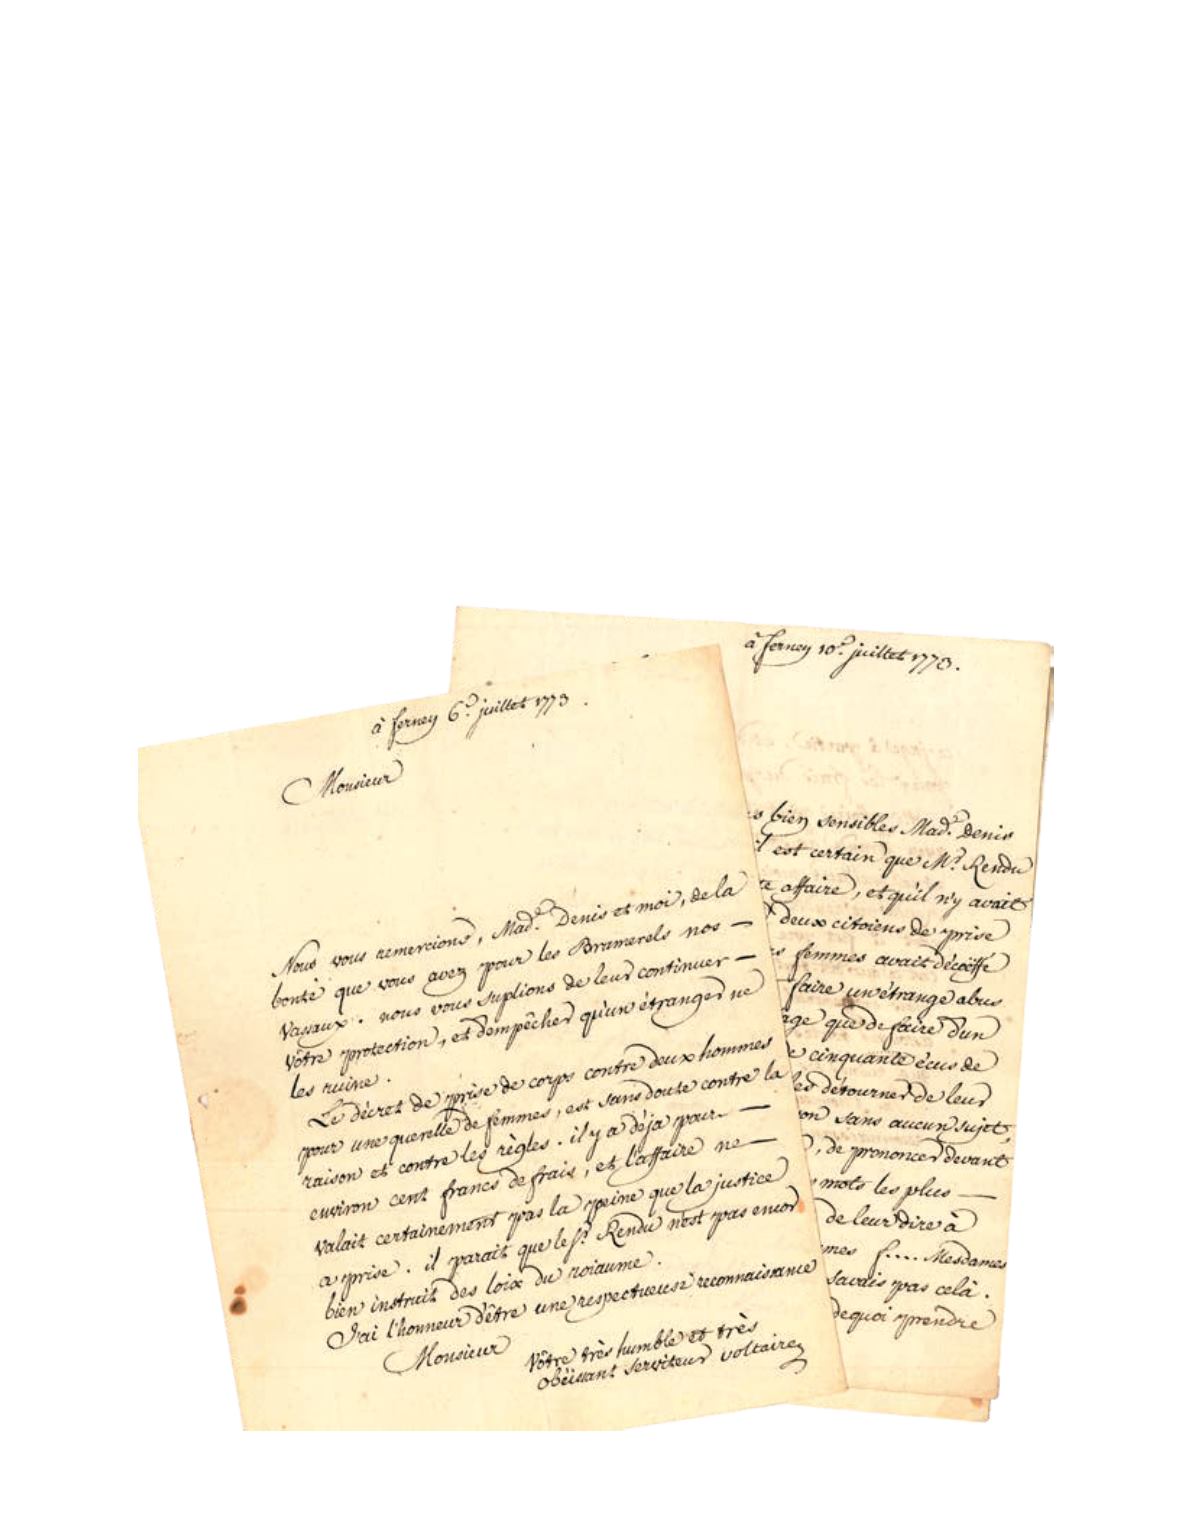 à ferney 6e. juillet 1773.
Monsieur
Nous vous remercions, Made. Denis et moi, de la
bonté que vous avez pour les Bramerels nos —
vassaux. nous vous suplions de leur continuer —
vôtre protection, et d'empêcher qu'un étranger ne
les ruine.
Le décret de prise de corps contre deux hommes
pour une querelle de femmes, est sans doute contre la
raison et contre les règles. il y a déja pour —
environ cent francs de frais, et l'affaire ne —
valait certainement pas la peine que la justice
a prise. il parait que le Sr. Rendu n'est pas encor
bien instruit des loix du roiaume.
J'ai l'honneur d'être une respectueuse reconnaissance
Monsieur
Vôtre très humble et très
obéissant serviteur voltaire
à ferney 10e. juillet 1773.
bien sensibles Made. Denis
il est certain que Mr. Rendu
affaire, et qu'il n'y avait
deux citoiens de prise
femmes avait décoëffé
faire un étrange abus
que de faire d'un
cinquante écus de
les détourner de leur
sans aucun sujet,
, de prononcer devant
mots les plus —
de leur dire à
f.... Mesdames
savais pas celà.
dequoi prendre